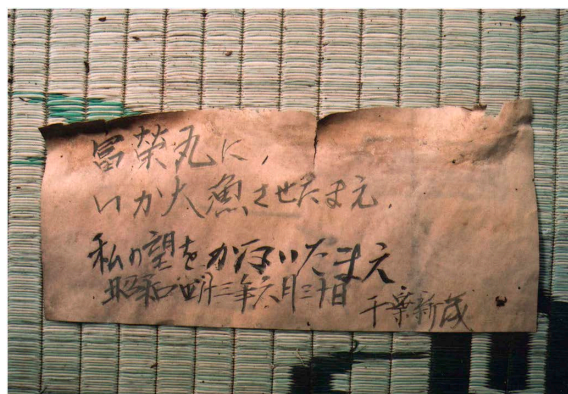 富榮丸に
いか大漁させたまえ
私の望をかないたまえ
昭和四十三年六月三十日
千葉新茂